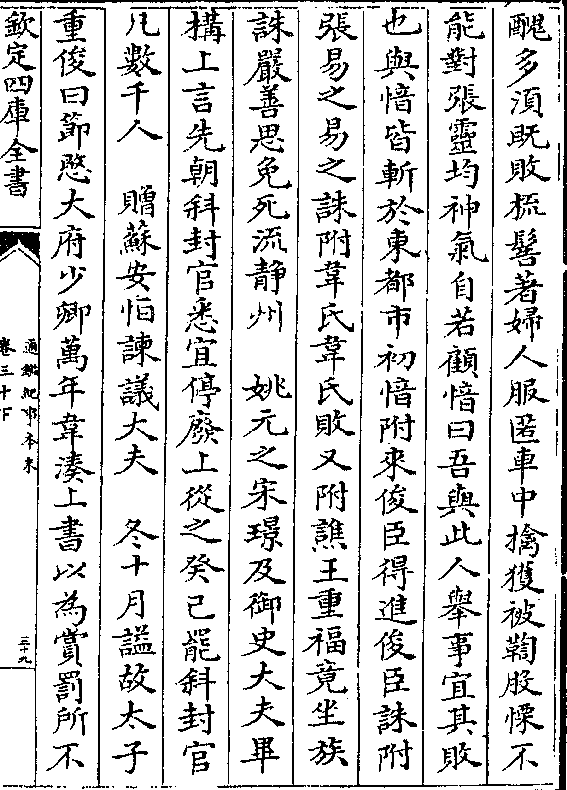 醜多須既敗梳髻著婦人服匿車中擒獲被鞫股慄不
能對張靈均神氣自若顧愔曰吾與此人舉事宜其敗
也與愔皆斬於東都市初愔附來俊臣得進俊臣誅附
張易之易之誅附韋氏韋氏敗又附譙王重福竟坐族
誅嚴善思免死流靜州　姚元之宋璟及御史大夫畢
構上言先朝斜封官悉宜停廢上從之癸已罷斜封官
凡數千人　贈蘇安恒諫議大夫　冬十月謚故太子
重俊曰節愍大府少卿萬年韋湊上書以為賞罰所不
欽定四庫全書
通鑑紀事本末
卷三十下
三十九